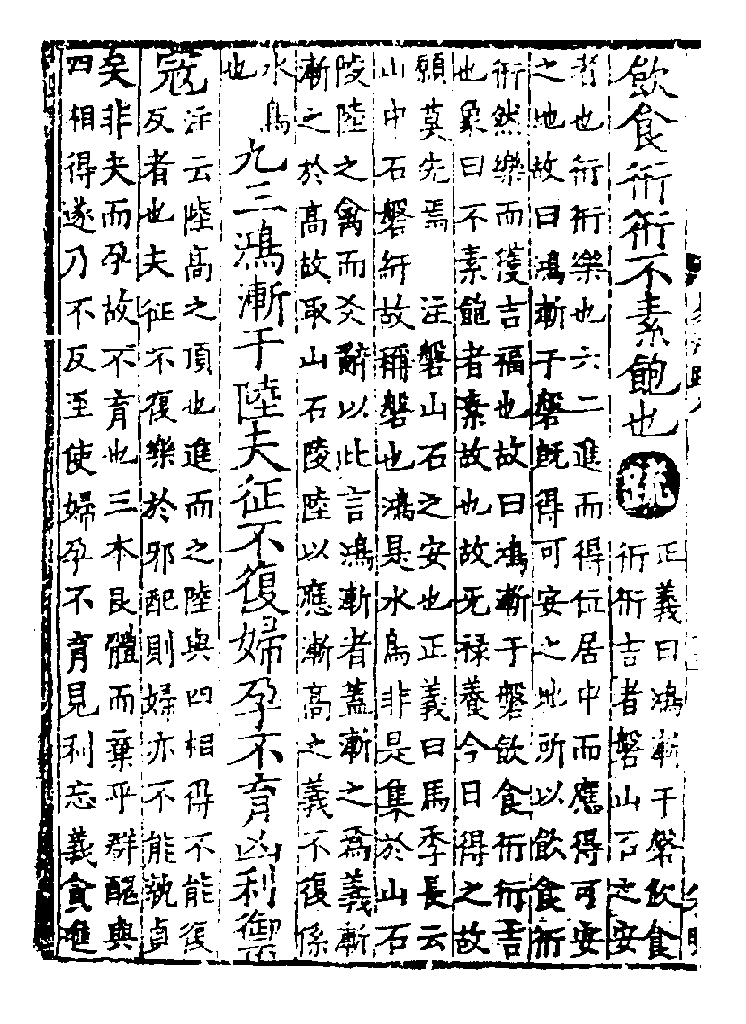 飲食衎衎不素飽也疏
正義曰鴻漸于磐飲食
衎衎吉者磐山石之安
者也衎衎樂也六二進而得位居中而應得可安
之地故曰鴻漸于磐既得可安之地所以飲食衎
衎然樂而獲吉福也故曰鴻漸于磐飲食衎衎吉
也象曰不素飽者素故也故无祿養今日得之故
願莫先焉　注磐山石之安也正義曰馬季長云
山中石磐紆故稱磐也鴻是水鳥非是集於山石
陵陸之禽而爻辭以此言鴻漸者蓋漸之為義漸
漸之於高故取山石陵陸以應漸高之義不復係
水鳥
也
九三鴻漸于陸夫征不復婦孕不育凶利禦
寇
注云陸高之頂也進而之陸與四相得不能復
反者也夫征不復樂於邪配則婦亦不能執貞
矣非夫而孕故不育也三本艮體而棄乎群醜與
四相得遂乃不反至使婦孕不育見利忘義貪進